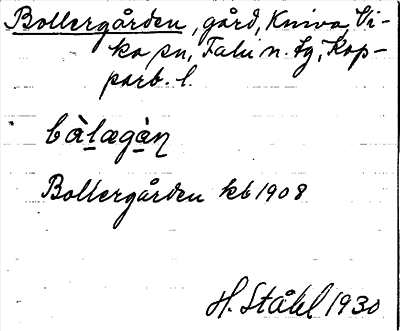 Bollergården, gård, Kniva, Vi-
ka sn, Falu n. tg, Kop-
parb. l.
bà̱lægà̱ṇ
Bollergården kb 1908
H. Ståhl 1930